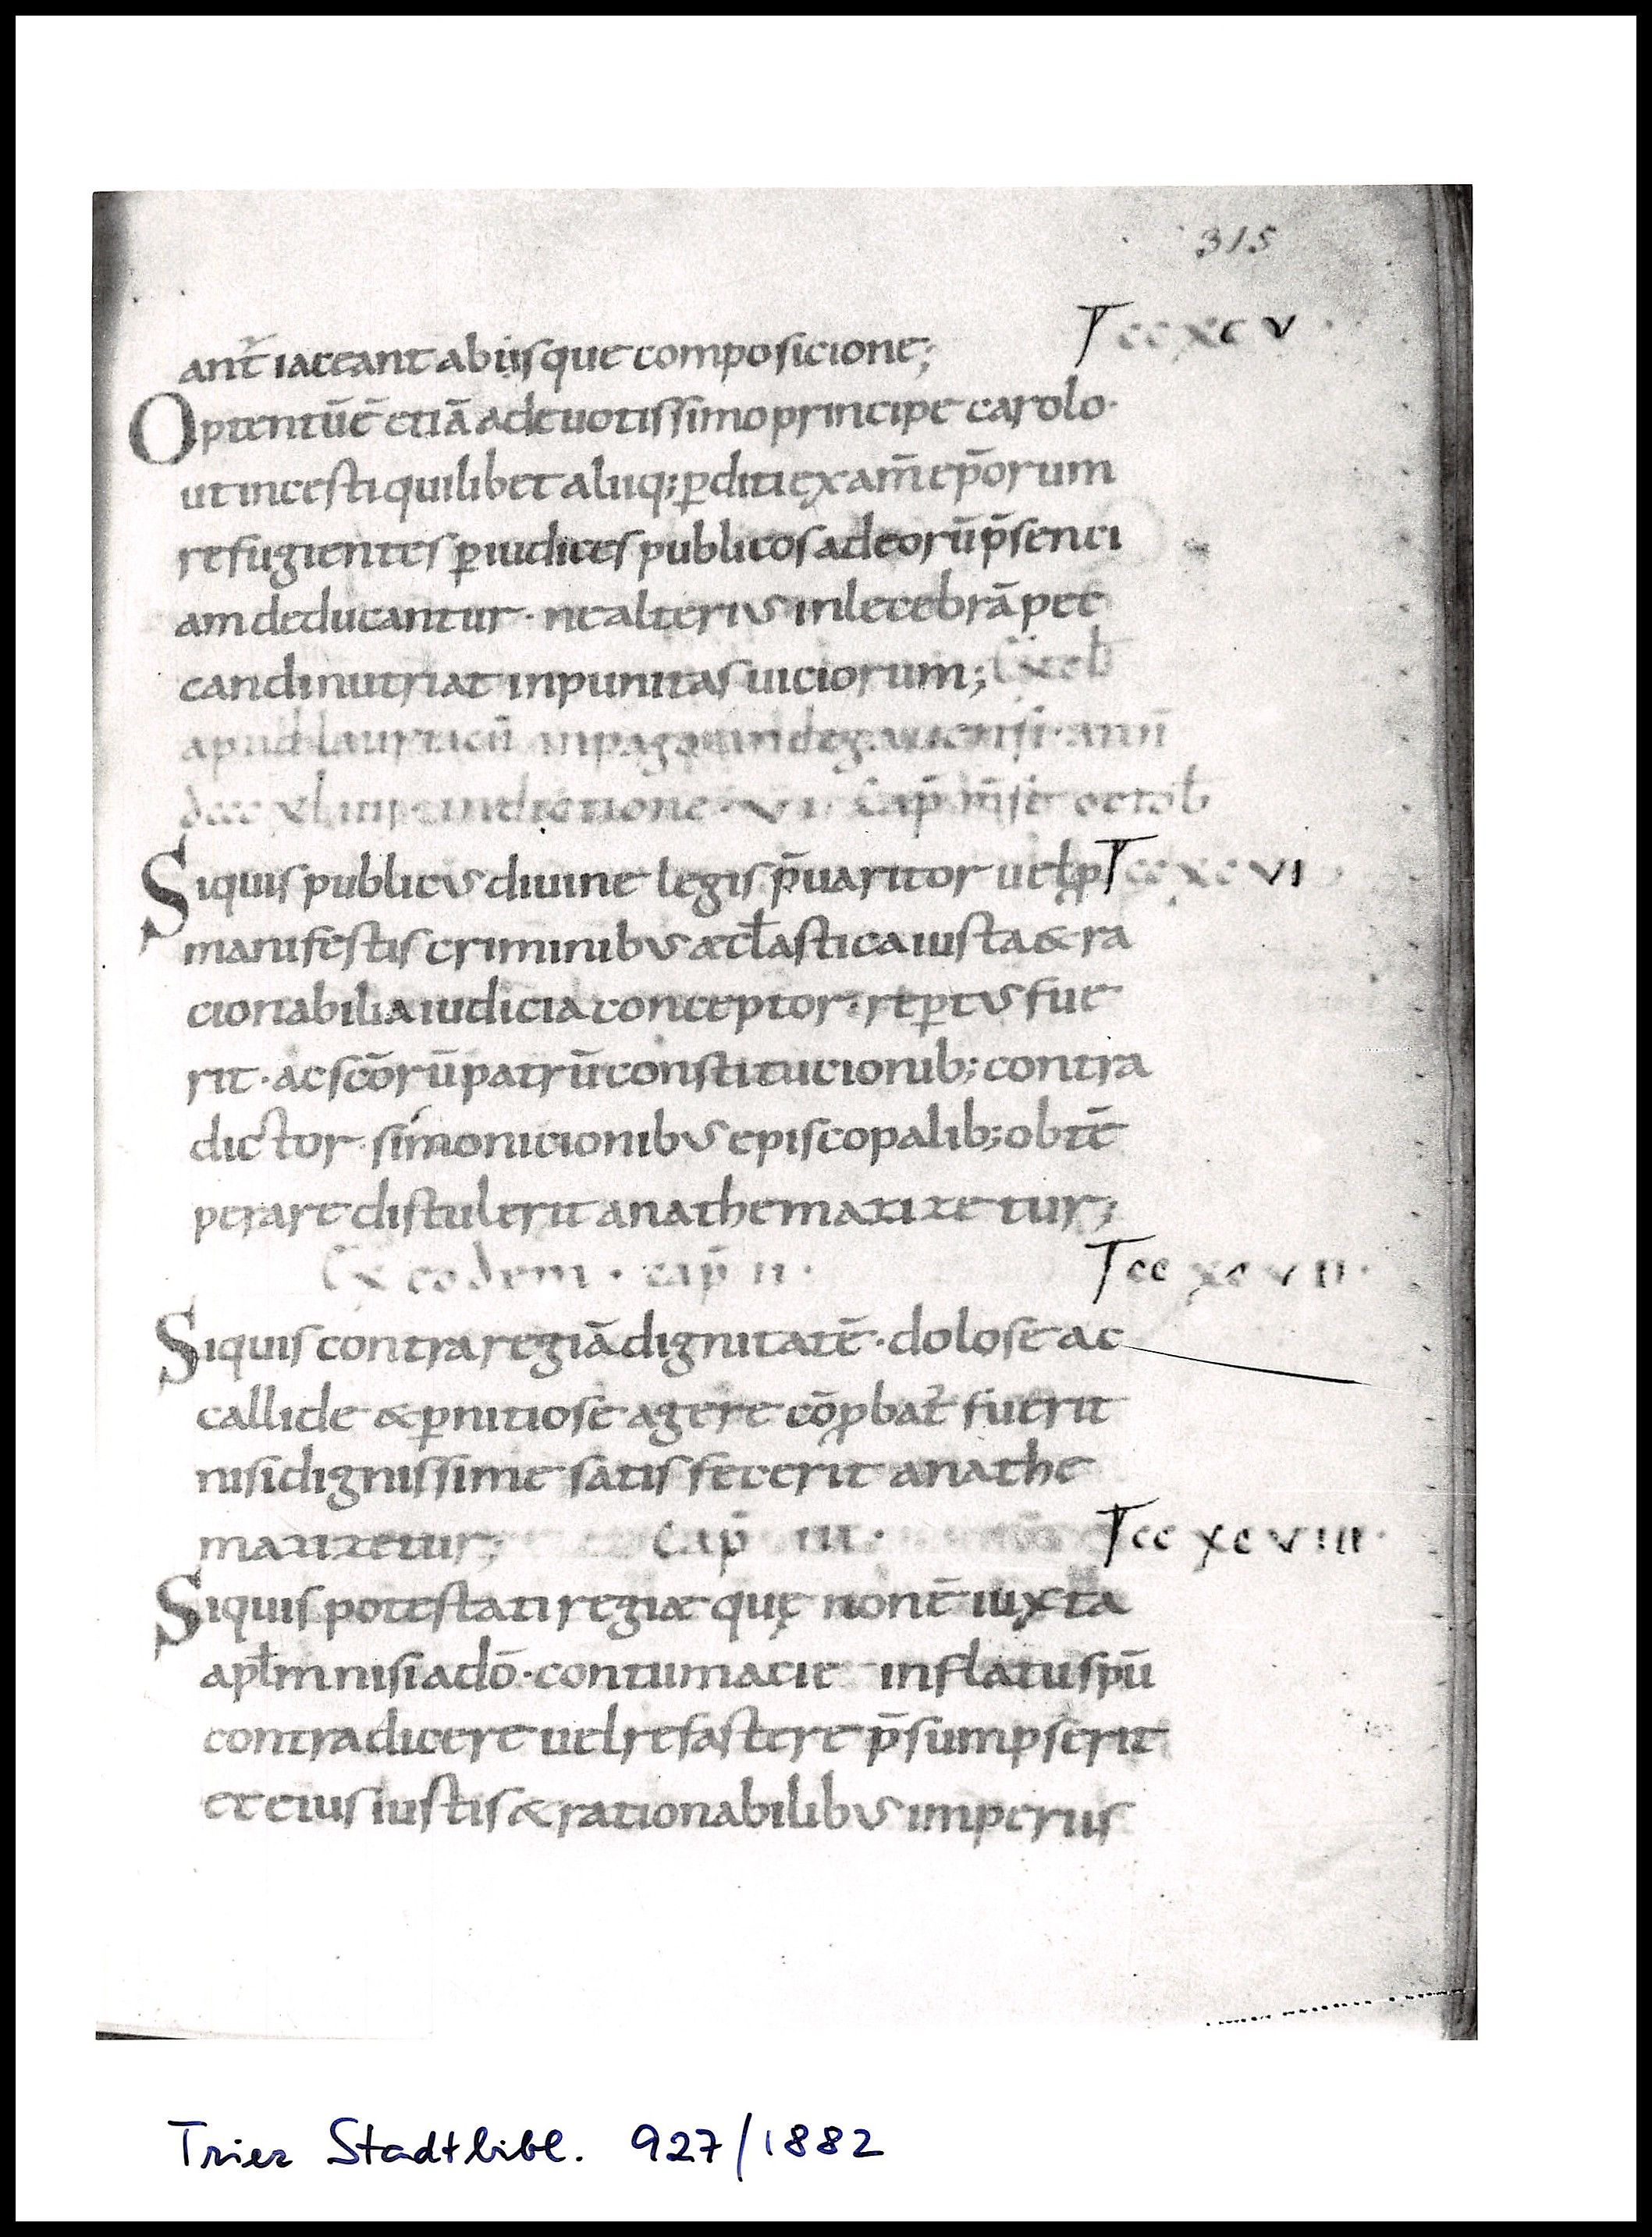 315
T ccxcv
ant̄ iaceant abiisque composicione;
Optentū ē etiā adeuotissimo principe carolo·
ut incesti quilibet aliiq; ꝑditi examē ep̄orum
refugientes ꝑ iudices publicos ad eorū p̄senti
am deducantur · ne alterius inlecebrā pec
candi nutriat inpunitas uiciorum; Ex
apud lauriacū in pago andegauensi· ann̄
dccc xl iii· indictione · vi· Cap̄ octob̄
Siquis publicus diuine legis p̄uaricor uel ꝓ T cc xc vi
manifestis criminibus æcl̄astica iusta & ra
cionabilia iudicia conceptor· reꝑtus fue
rit · ac scōrū patrū constitucionib; contra
dictor · si monicionibus episcopalib; obtē
perare distulerit anathematizetur;
Ex eodem · cap̄ ii · T cc xc vii·
Siquis contra regiā dignitatē · dolose ac
callide & ꝑnitiose agere cōꝓbat᷑ fuerit
nisi dignissime satis fecerit anathe
matizetur; Cap̄ iii · T cc xc viii·
Siquis potestati regiæ quę non ē iuxta
apl̄m nisi a dō · contumacie inflatu spū
contradicere uel refastere p̄sumpserit
et eius iustis & rationabilibus imperiis
Trier Stadtbibl. 927/1882